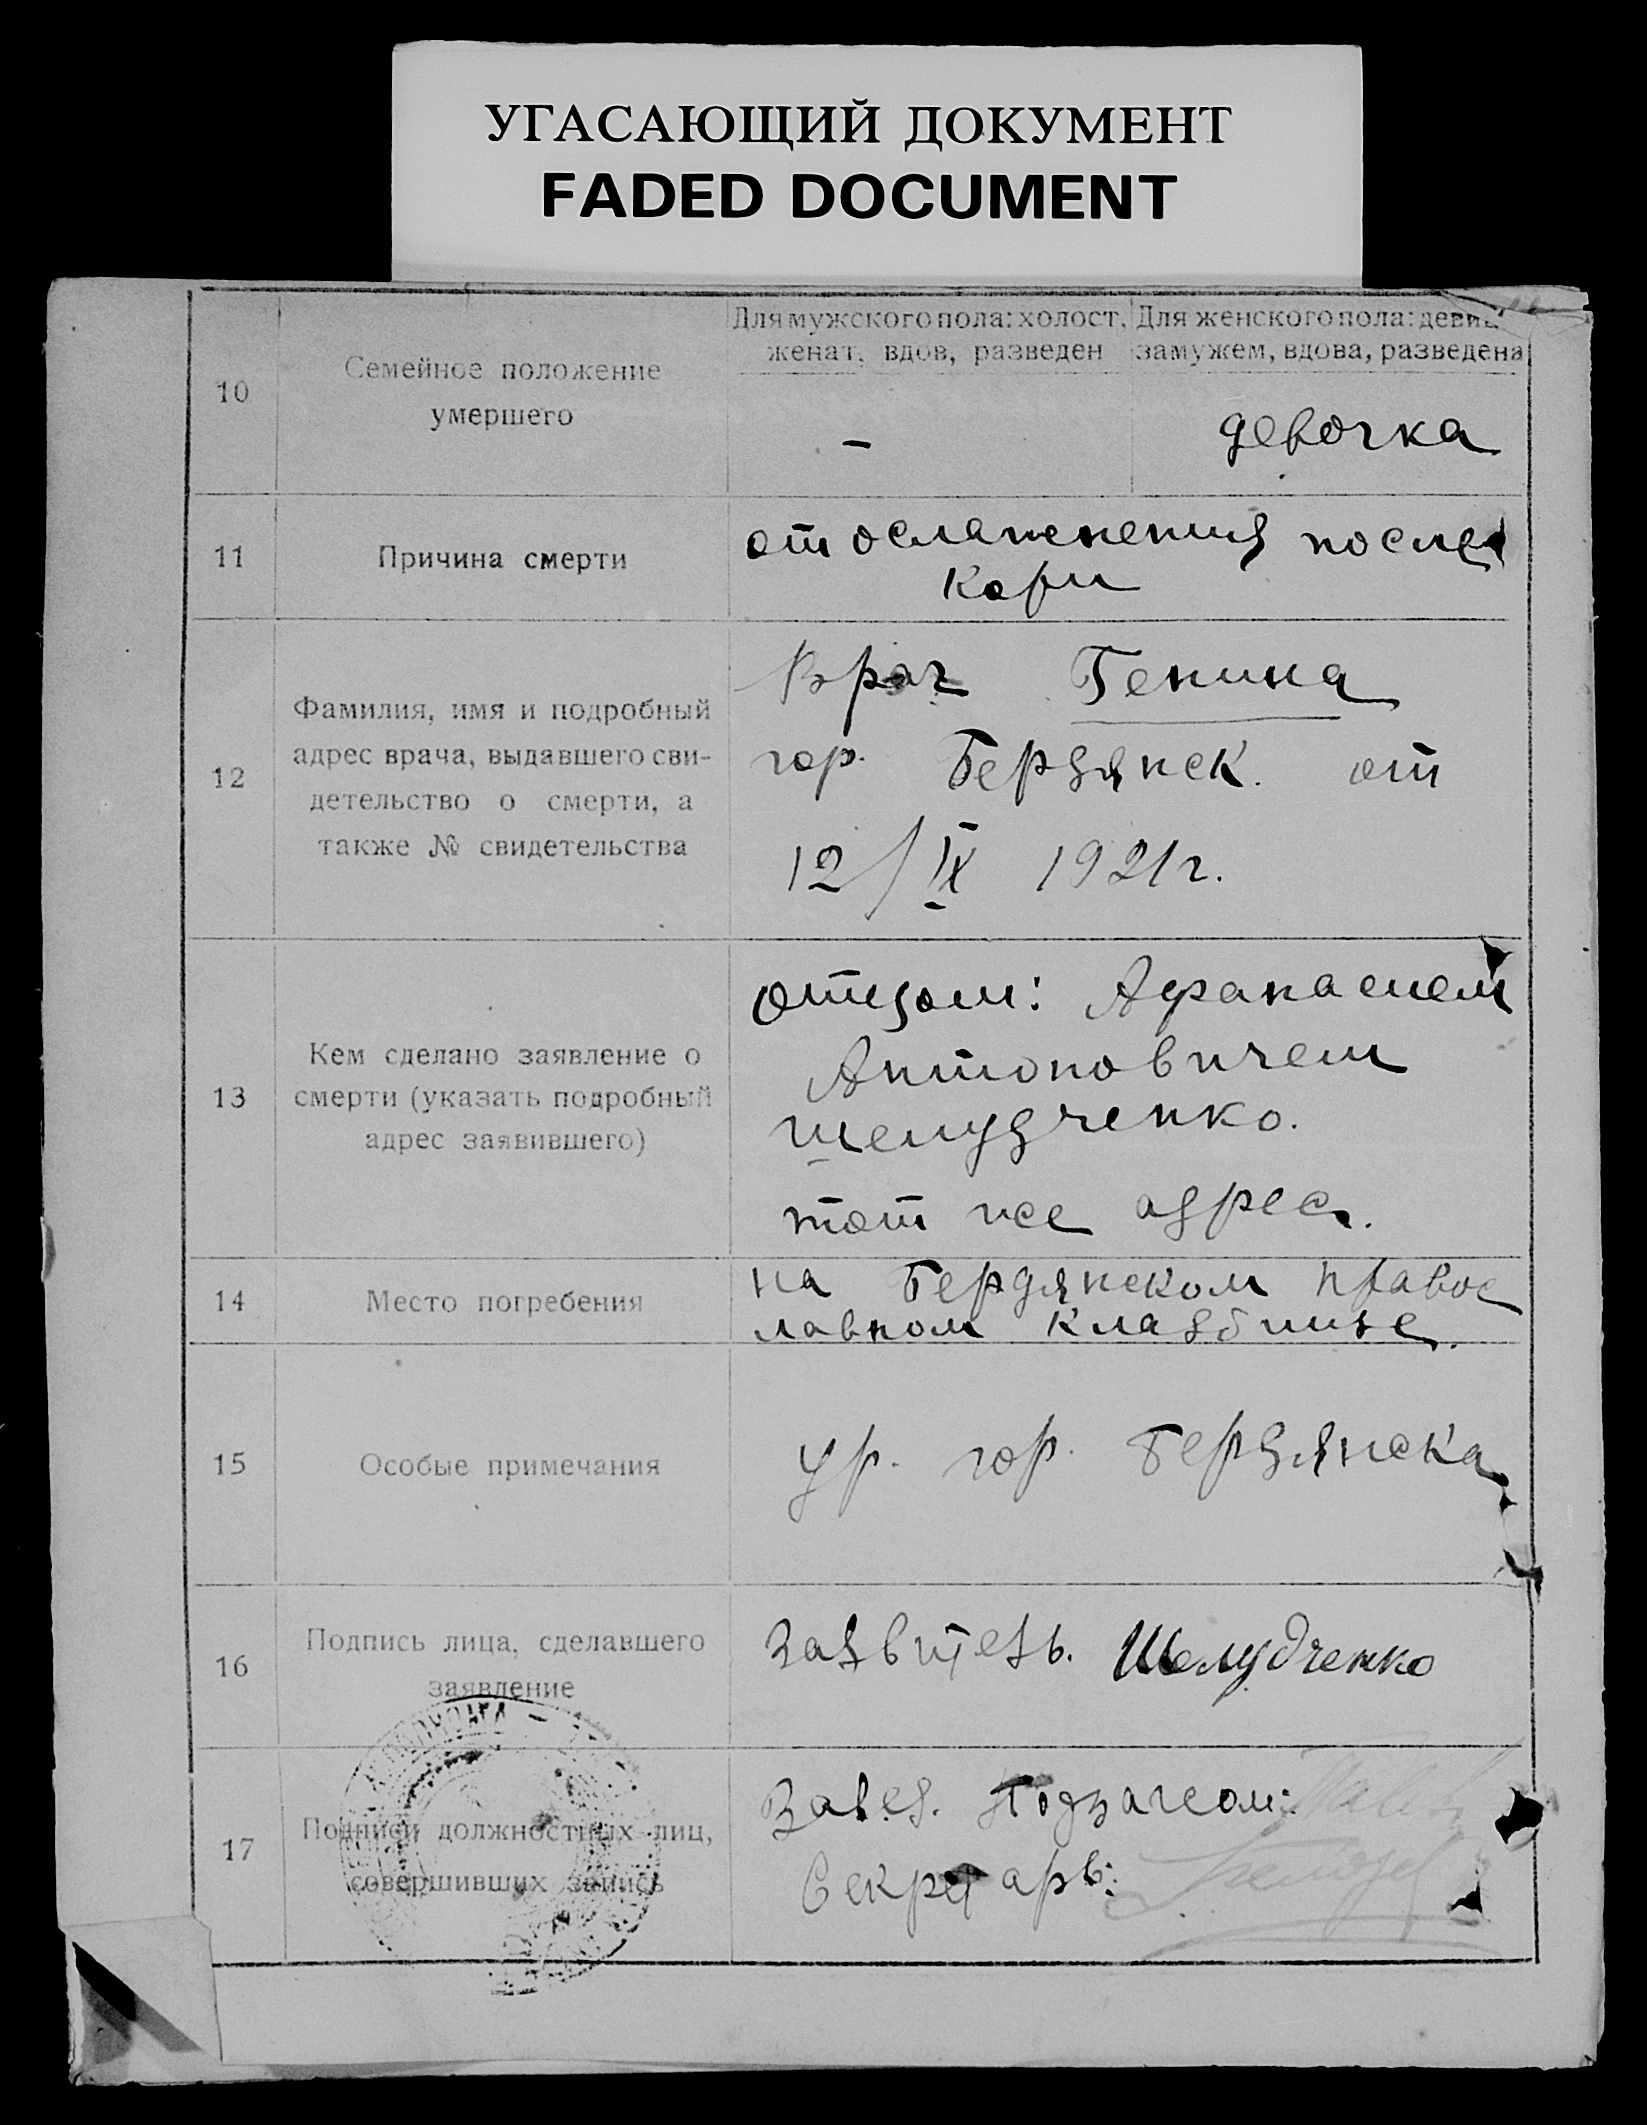 УГАСАЮЩИЙ ДОКУМЕНТ
FADED DOCUMENT
10
Семейное положение
умершего
Для мужского пола: холост,
женат, вдов, разведен
Для женского пола: девиц
замужем, вдова, разведена
–
девочка
11
Причина смерти
от осложнения после
кори
12
Фамилия, имя и подробный
адрес врача, выдавшего сви-
детельство о смерти, а
также № свидетельства
Врач Генина
гор. Бердянск. от
12/IX 1921г.
13
Кем сделано заявление о
смерти (указать подробный
адрес заявившего)
отцом: Афанасием
Антоновичем
Шелудченко.
тот же адрес.
14
Место погребения
на Бердянском правос
лавном кладбище.
15
Особые примечания
Ур. гор. Бердянска
16
Подпись лица, сделавшего
заявление
Заявитель. Шелудченко
17
Подписи должностных лиц,
совершивших запись
Завед. Подзагсом:
Секретарь: